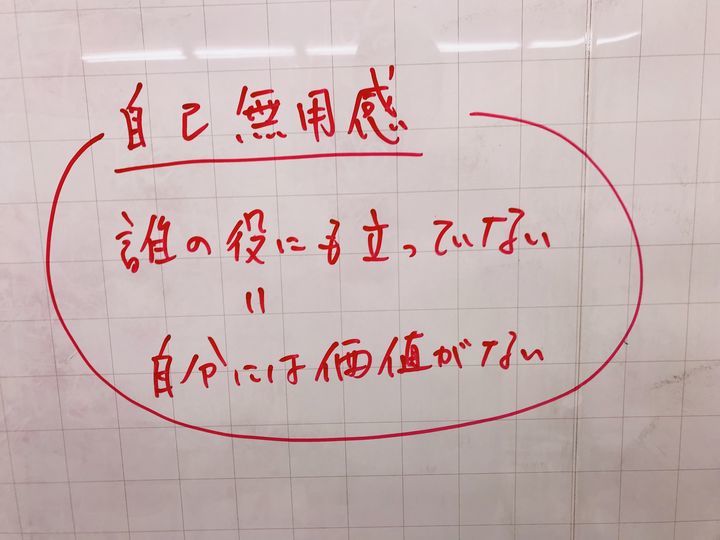 自己無用感
誰の役にも立っていない
=
自分には価値がない